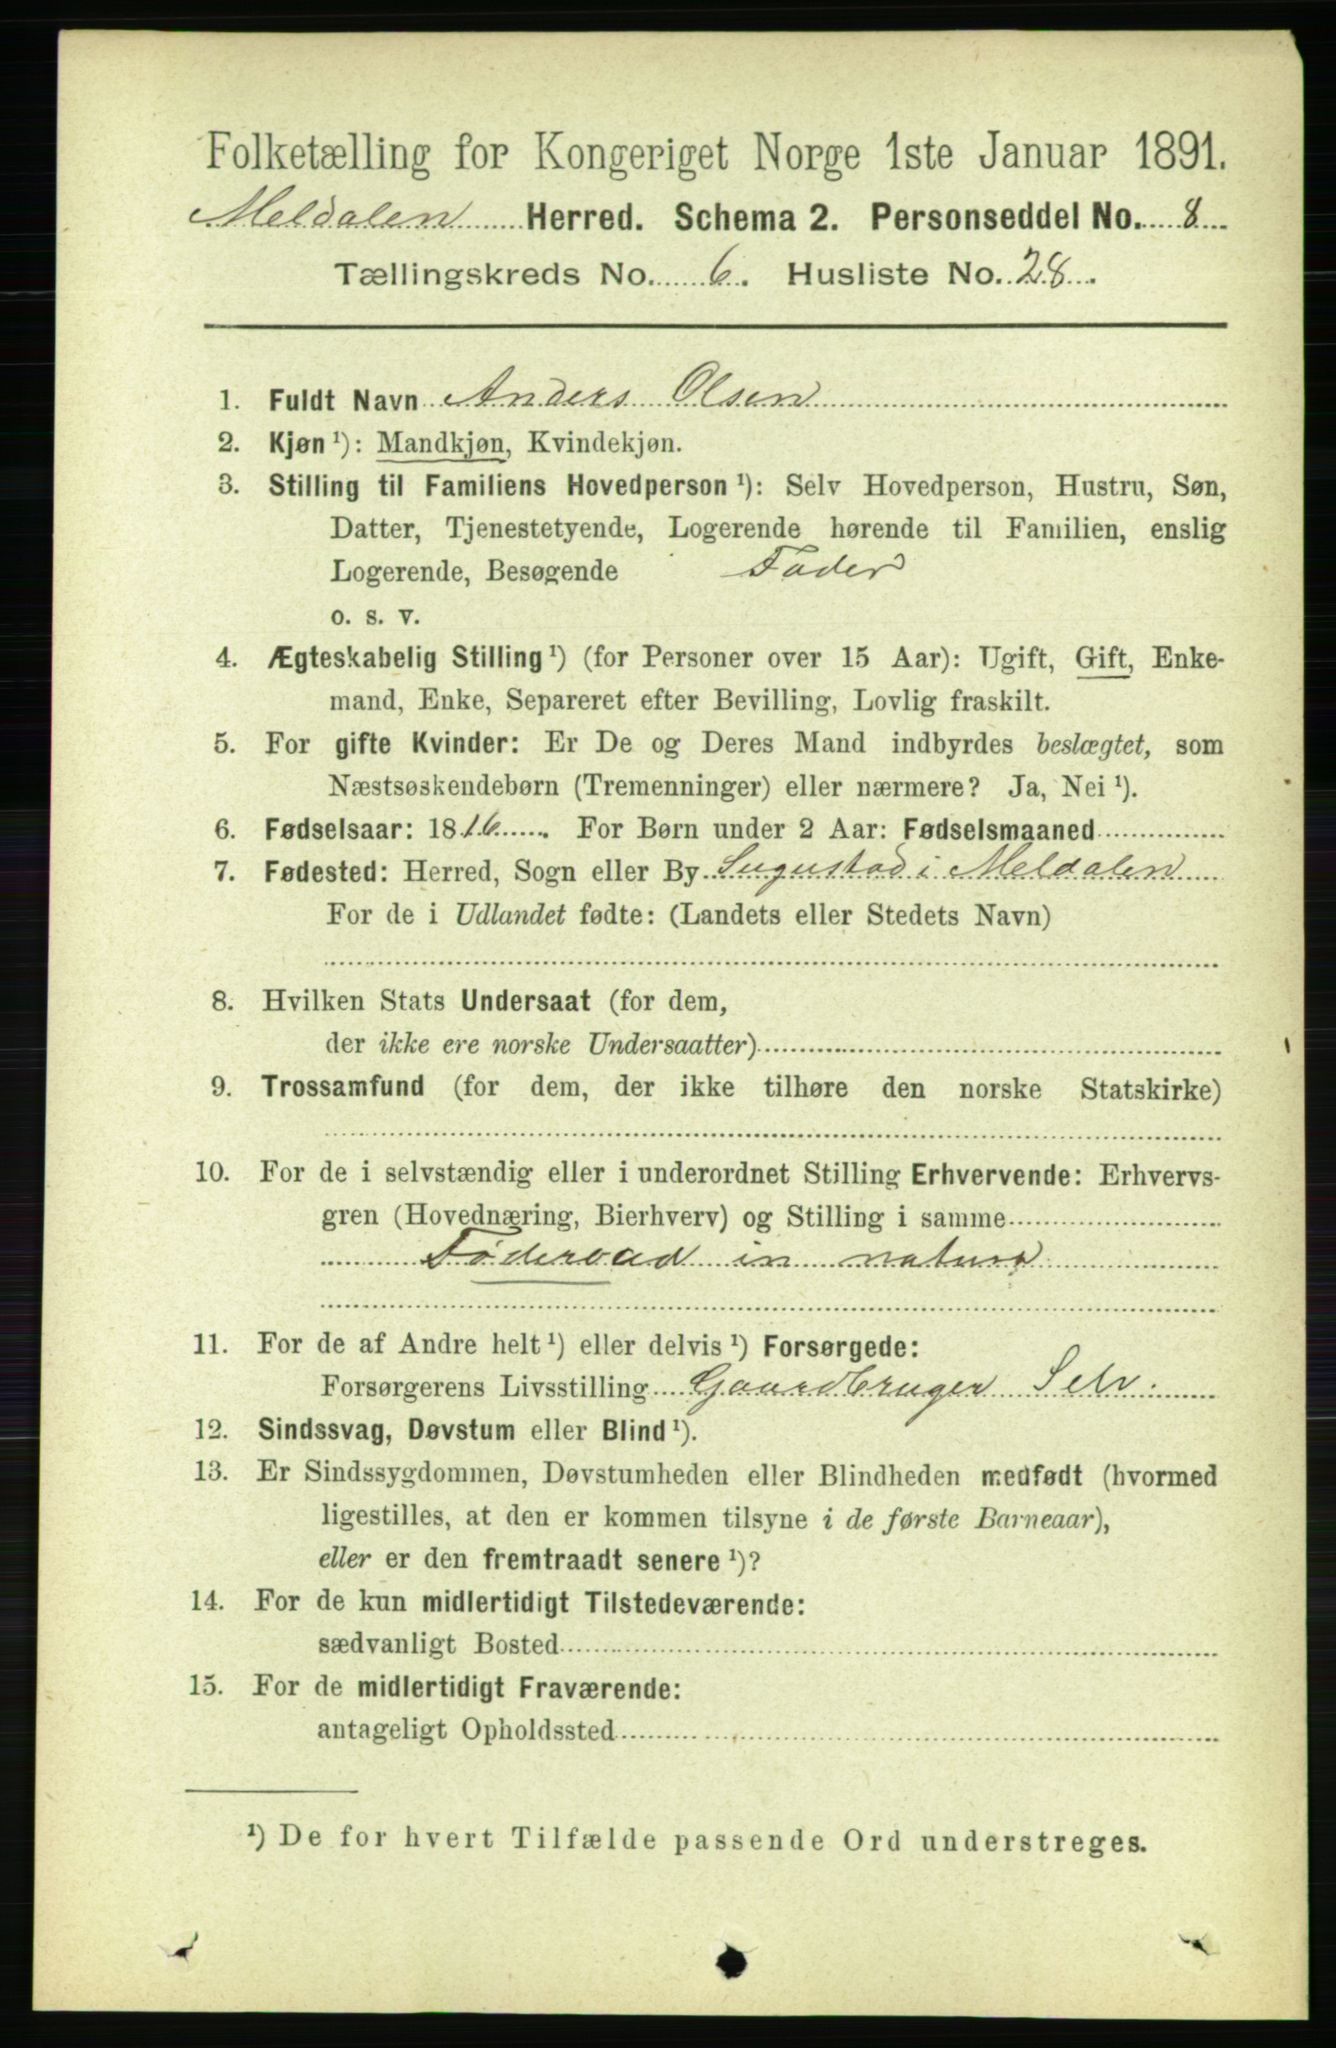 Folketælling for Kongeriget Norge 1ste Januar 1891.
Meldalen Herred. Schema 2. Personseddel No. 8
Tællingskreds No. 6. Husliste No. 28.
1. Fuldt Navn Anders Olsen
2. Kjøn ¹): Mandkjøn, Kvindekjøn.
3. Stilling til Familiens Hovedperson ¹): Selv Hovedperson, Hustru, Søn,
Datter, Tjenestetyende, Logerende hørende til Familien, enslig
Logerende, Besøgende Fader
o. s. v.
4. Ægteskabelig Stilling ¹) (for Personer over 15 Aar): Ugift, Gift, Enke-
mand, Enke, Separeret efter Bevilling, Lovlig fraskilt.
5. For gifte Kvinder: Er De og Deres Mand indbyrdes beslægtet, som
Næstsøskendebørn (Tremenninger) eller nærmere? Ja, Nei ¹).
6. Fødselsaar: 1816. For Børn under 2 Aar: Fødselsmaaned
7. Fødested: Herred, Sogn eller By i Meldalen
For de i Udlandet fødte: (Landets eller Stedets Navn)
8. Hvilken Stats Undersaat (for dem,
der ikke ere norske Undersaatter)
9. Trossamfund (for dem, der ikke tilhøre den norske Statskirke)
10. For de i selvstændig eller i underordnet Stilling Erhvervende: Erhvervs-
gren (Hovednæring, Bierhverv) og Stilling i samme
Föderaad in natura
11. For de af Andre helt ¹) eller delvis ¹) Forsørgede:
Forsørgerens Livsstilling Gaardbruger Selv.
12. Sindssvag, Døvstum eller Blind ¹).
13. Er Sindssygdommen, Døvstumheden eller Blindheden medfødt (hvormed
ligestilles, at den er kommen tilsyne i de første Barneaar),
eller er den fremtraadt senere ¹)?
14. For de kun midlertidigt Tilstedeværende:
sædvanligt Bosted
15. For de midlertidigt Fraværende:
antageligt Opholdssted
¹) De for hvert Tilfælde passende Ord understreges.